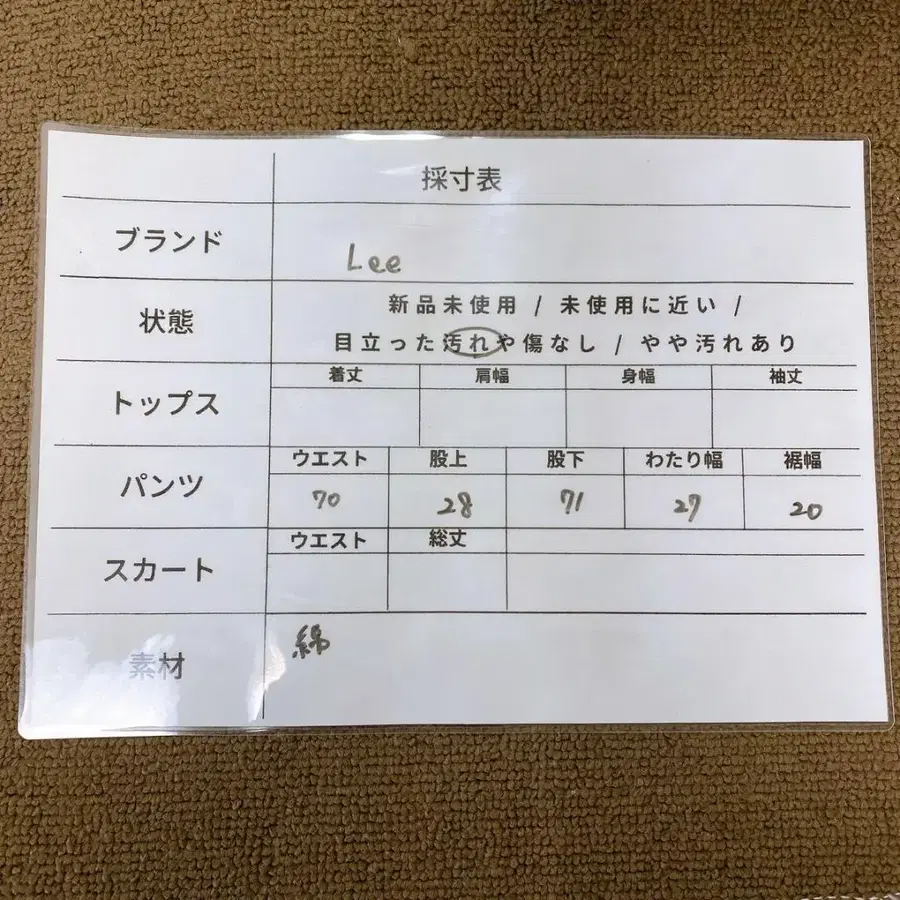 採寸表
ブランド
Lee
状態
新品未使用 / 未使用に近い /
目立った汚れや傷なし / やや汚れあり
トップス
着丈 肩幅 身幅 袖丈
パンツ
ウエスト 股上 股下 わたり幅 裾幅
70 28 71 27 20
スカート
ウエスト 総丈
素材
綿